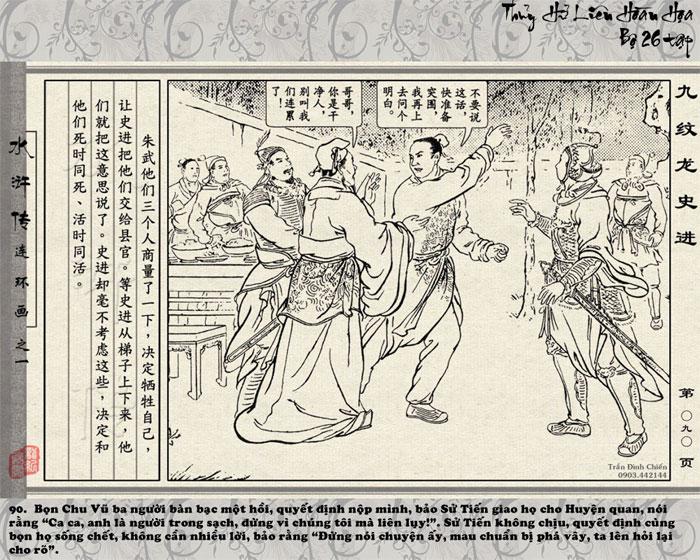 Thủy Hử Liên Hoàn Họa
Bộ 26 tập
九纹龙史进
第〇九〇页
不要说
这话，
快准备
突围，
我再上
去问个
明白。
哥哥，
你是干
净人，
别叫我
们连累
了！
朱武他们三个人商量了一下，决定牺牲自己，
让史进把他们交给县官。等史进从梯子上下来，他
们就把这意思说了。史进却毫不考虑这些，决定和
他们死时同死、活时同活。
水浒传连环画之一
Trần Đình Chiến
0903.442144
90. Bọn Chu Vũ ba người bàn bạc một hồi, quyết định nộp mình, bảo Sử Tiến giao họ cho Huyện quan, nói
rằng “Ca ca, anh là người trong sạch, đừng vì chúng tôi mà liên lụy!”. Sử Tiến không chịu, quyết định cùng
bọn họ sống chết, không cần nhiều lời, bảo rằng “Đừng nói chuyện ấy, mau chuẩn bị phá vây, ta lên hỏi lại
cho rõ”.